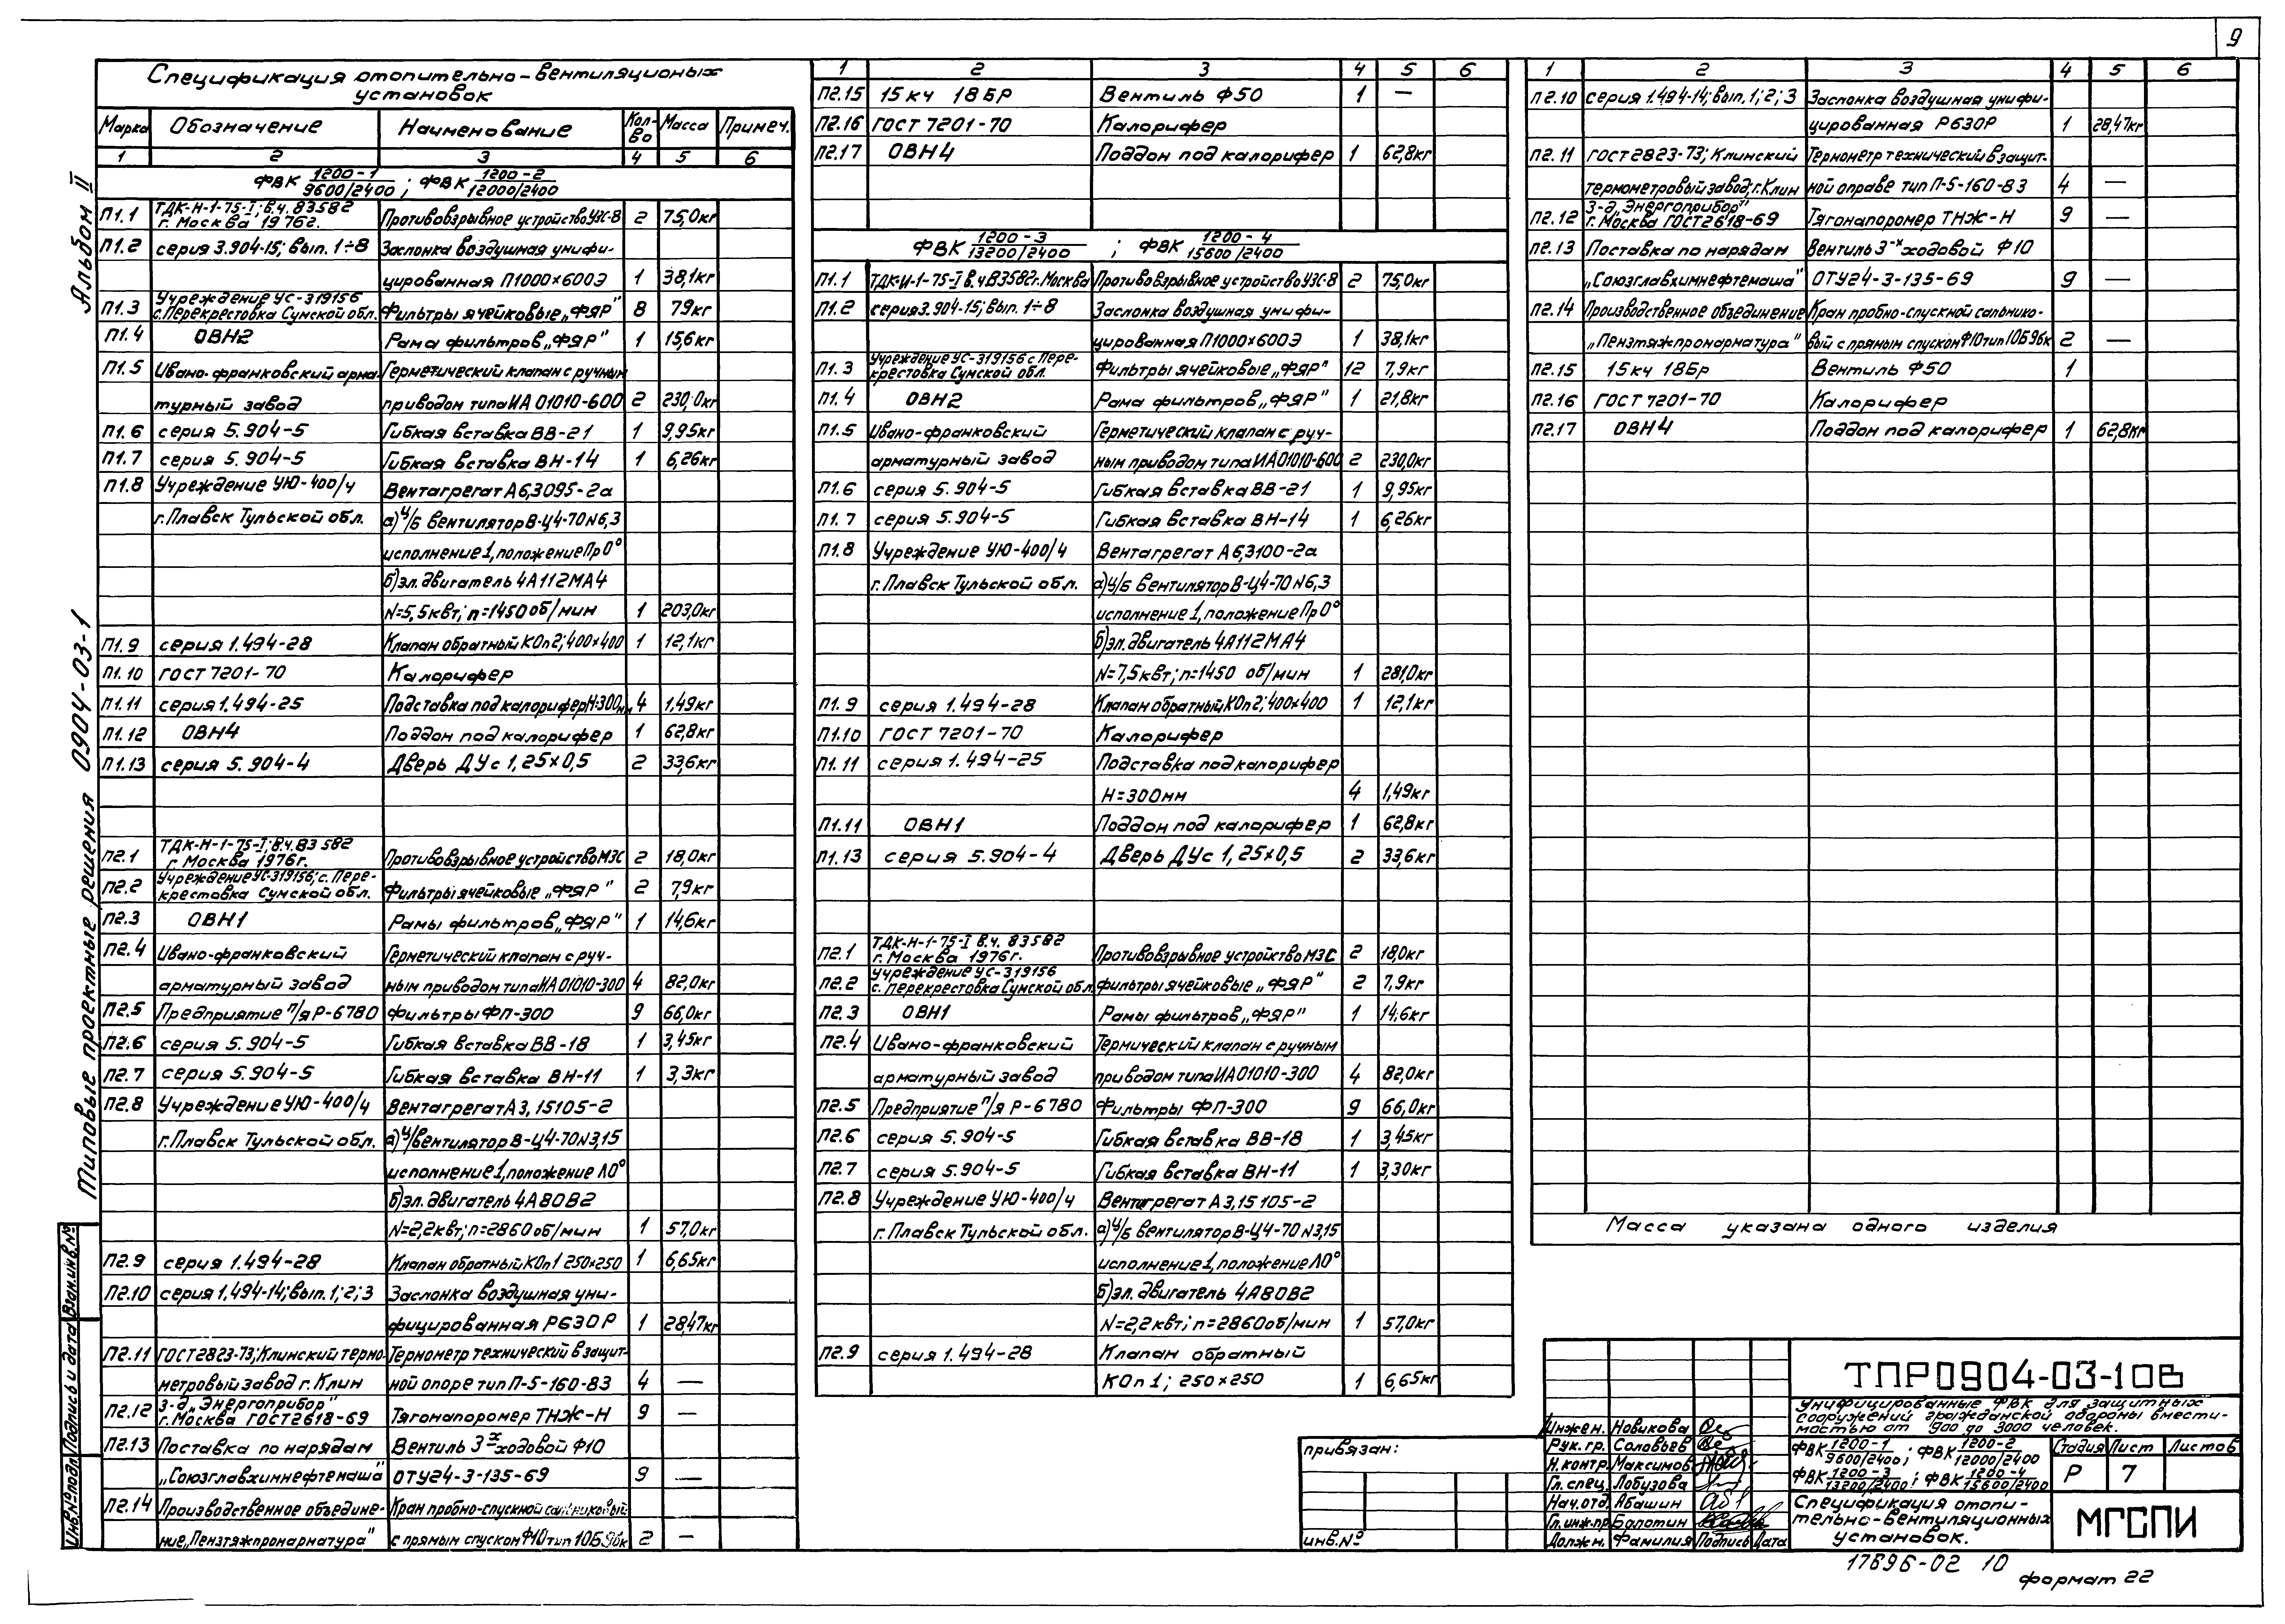 9
Альбом II
Типовые проектные решения 0904-03-1
Спецификация отопительно-вентиляционых
установок
Марка Обозначение Наименование Кол-во Масса Примеч.
1 2 3 4 5 6
ФВК 1200-1/9600/2400 ; ФВК 1200-2/12000/2400
П1.1 ТДК-Н-1-75-I; в.ч. 83582 г. Москва 1976г. Противовзрывное устройство УЗС-8 2 75,0кг
П1.2 серия 3.904-15; вып. 1÷8 Заслонка воздушная унифи-
цированная П1000×600Э 1 38,1кг
П1.3 Учреждение УС-319156 с. Перекрестовка Сумской обл. Фильтры ячейковые „ФЯР" 8 79кг
П1.4 ОВН2 Рама фильтров „ФЯР" 1 15,6кг
П1.5 Ивано-франковский арма- Герметический клапан с ручным
турный завод приводом типа ИА 01010-600 2 230,0кг
П1.6 серия 5.904-5 Гибкая вставка ВВ-21 1 9,95кг
П1.7 серия 5.904-5 Гибкая вставка ВН-14 1 6,26кг
П1.8 Учреждение УЮ-400/4 Вентагрегат А6,3095-2а
г. Плавск Тульской обл. а) ц/б вентилятор В-Ц4-70 N6,3
исполнение 1, положение Пр 0°
б) эл. двигатель 4А112МА4
N=5,5квт; n=1450 об/мин 1 203,0кг
П1.9 серия 1.494-28 Клапан обратный КОп2; 400×400 1 12,1кг
П1.10 ГОСТ 7201-70 Калорифер
П1.11 серия 1.494-25 Подставка под калорифер Н-300мм 4 1,49кг
П1.12 ОВН4 Поддон под калорифер 1 62,8кг
П1.13 серия 5.904-4 Дверь ДУс 1,25×0,5 2 33,6кг
П2.1 ТДК-Н-1-75-I; в.ч. 83 582 г. Москва 1976г. Противовзрывное устройство МЗС 2 18,0кг
П2.2 Учреждение УС-319156; с. Пере-крестовка Сумской обл. Фильтры ячейковые „ФЯР" 2 7,9кг
П2.3 ОВН1 Рамы фильтров „ФЯР" 1 14,6кг
П2.4 Ивано-франковский Герметический клапан с руч-
арматурный завод ным приводом типа ИА 01010-300 4 82,0кг
П2.5 Предприятие п/я Р-6780 Фильтры ФП-300 9 66,0кг
П2.6 серия 5.904-5 Гибкая вставка ВВ-18 1 3,45кг
П2.7 серия 5.904-5 Гибкая вставка ВН-11 1 3,3кг
П2.8 Учреждение УЮ-400/4 Вентагрегат А3,15105-2
г. Плавск Тульской обл. а) ц/вентилятор В-Ц4-70 N3,15
исполнение 1, положение Л0°
б) эл. двигатель 4А80В2
N=2,2квт; n=2860 об/мин 1 57,0кг
П2.9 серия 1.494-28 Клапан обратный КОп1 250×250 1 6,65кг
П2.10 серия 1.494-14; вып. 1; 2; 3 Заслонка воздушная уни-
фицированная Р630Р 1 28,47кг
П2.11 ГОСТ 2823-73; Клинский термо- Термометр технический в защит-
метровый завод г. Клин ной опоре тип П-5-160-83 4 —
П2.12 З-д „Энергоприбор" г. Москва ГОСТ 2618-69 Тягонапоромер ТНЖ-Н 9 —
П2.13 Поставка по нарядам Вентиль 3х ходовой Ф10
„Союзглавхимнефтемаша" ОТУ24-3-135-69 9 —
П2.14 Производственное объедине- Кран пробно-спускной сальниковый
ние „Пензтяжпромарматура" с прямым спуском Ф10 тип 10Б9бк 2 —
1 2 3 4 5 6
П2.15 15кч 18БР Вентиль Ф50 1 —
П2.16 ГОСТ 7201-70 Калорифер
П2.17 ОВН4 Поддон под калорифер 1 62,8кг
ФВК 1200-3/13200/2400 ; ФВК 1200-4/15600/2400
П1.1 ТДК-И-1-75-I в.ч. 83582г. Москва Противовзрывное устройство УЗС-8 2 75,0кг
П1.2 серия 3.904-15; вып. 1÷8 Заслонка воздушная унифи-
цированная П1000×600Э 1 38,1кг
П1.3 Учреждение УС-319156 с Пере-крестовка Сумской обл. Фильтры ячейковые „ФЯР" 12 7,9кг
П1.4 ОВН2 Рама фильтров „ФЯР" 1 21,8кг
П1.5 Ивано-франковский Герметический клапан с руч-
арматурный завод ным приводом типа ИА 01010-600 2 230,0кг
П1.6 серия 5.904-5 Гибкая вставка ВВ-21 1 9,95кг
П1.7 серия 5.904-5 Гибкая вставка ВН-14 1 6,26кг
П1.8 Учреждение УЮ-400/4 Вентагрегат А6,3100-2а
г. Плавск Тульской обл. а) ц/б вентилятор В-Ц4-70 N6,3
исполнение 1, положение Пр 0°
б) эл. двигатель 4А112МА4
N=7,5квт; n=1450 об/мин 1 281,0кг
П1.9 серия 1.494-28 Клапан обратный КОп2; 400×400 1 12,1кг
П1.10 ГОСТ 7201-70 Калорифер
П1.11 серия 1.494-25 Подставка под калорифер
Н=300мм 4 1,49кг
П1.11 ОВН1 Поддон под калорифер 1 62,8кг
П1.13 серия 5.904-4 Дверь ДУс 1,25×0,5 2 33,6кг
П2.1 ТДК-Н-1-75-I в.ч. 83582 г. Москва 1976г. Противовзрывное устройство МЗС 2 18,0кг
П2.2 Учреждение УС-319156 с. Перекрестовка Сумской обл. Фильтры ячейковые „ФЯР" 2 7,9кг
П2.3 ОВН1 Рамы фильтров „ФЯР" 1 14,6кг
П2.4 Ивано-франковский Термический клапан с ручным
арматурный завод приводом типа ИА 01010-300 4 82,0кг
П2.5 Предприятие п/я Р-6780 Фильтры ФП-300 9 66,0кг
П2.6 серия 5.904-5 Гибкая вставка ВВ-18 1 3,45кг
П2.7 серия 5.904-5 Гибкая вставка ВН-11 1 3,30кг
П2.8 Учреждение УЮ-400/4 Вентагрегат А3,15105-2
г. Плавск Тульской обл. а) ц/б вентилятор В-Ц4-70 N3,15
исполнение 1, положение Л0°
б) эл. двигатель 4А80В2
N=2,2квт; n=2860 об/мин 1 57,0кг
П2.9 серия 1.494-28 Клапан обратный
КОп1; 250×250 1 6,65кг
1 2 3 4 5 6
П2.10 серия 1.494-14; вып. 1; 2; 3 Заслонка воздушная унифи-
цированная Р630Р 1 28,47кг
П2.11 ГОСТ 2823-73; Клинский Термометр технический в защит-
термометровый завод; г. Клин ной оправе тип П-5-160-83 4 —
П2.12 З-д „Энергоприбор" г. Москва ГОСТ 2618-69 Тягонапоромер ТНЖ-Н 9 —
П2.13 Поставка по нарядам Вентиль 3-х ходовой Ф10
„Союзглавхимнефтемаша" ОТУ24-3-135-69 9 —
П2.14 Производственное объединение Кран пробно-спускной сальнико-
„Пензтяжпромарматура" вый с прямым спуском Ф10 тип 10Б9бк 2 —
П2.15 15кч 18Бр Вентиль Ф50 1
П2.16 ГОСТ 7201-70 Калорифер
П2.17 ОВН4 Поддон под калорифер 1 62,8кг
Масса указана одного изделия
Взам.инв.№
Подпись и дата
Инв.№ подл
привязан:
инв.№
Инжен. Новикова
Рук. гр. Соловьев
Н.контр. Максимов
Гл. спец. Лобузова
Нач. отд. Абашин
Гл. инж. пр. Болотин
Должн. Фамилия Подпись Дата
ТПР0904-03-1ОВ
Унифицированные ФВК для защитных
сооружений гражданской обороны вмести-
мостью от 900 до 3000 человек.
ФВК 1200-1/9600/2400 ; ФВК 1200-2/12000/2400
ФВК 1200-3/13200/2400 ; ФВК 1200-4/15600/2400
Стадия Лист Листов
Р 7
Спецификация отопи-
тельно-вентиляционных
установок.
МГСПИ
17696-02 10
формат 22